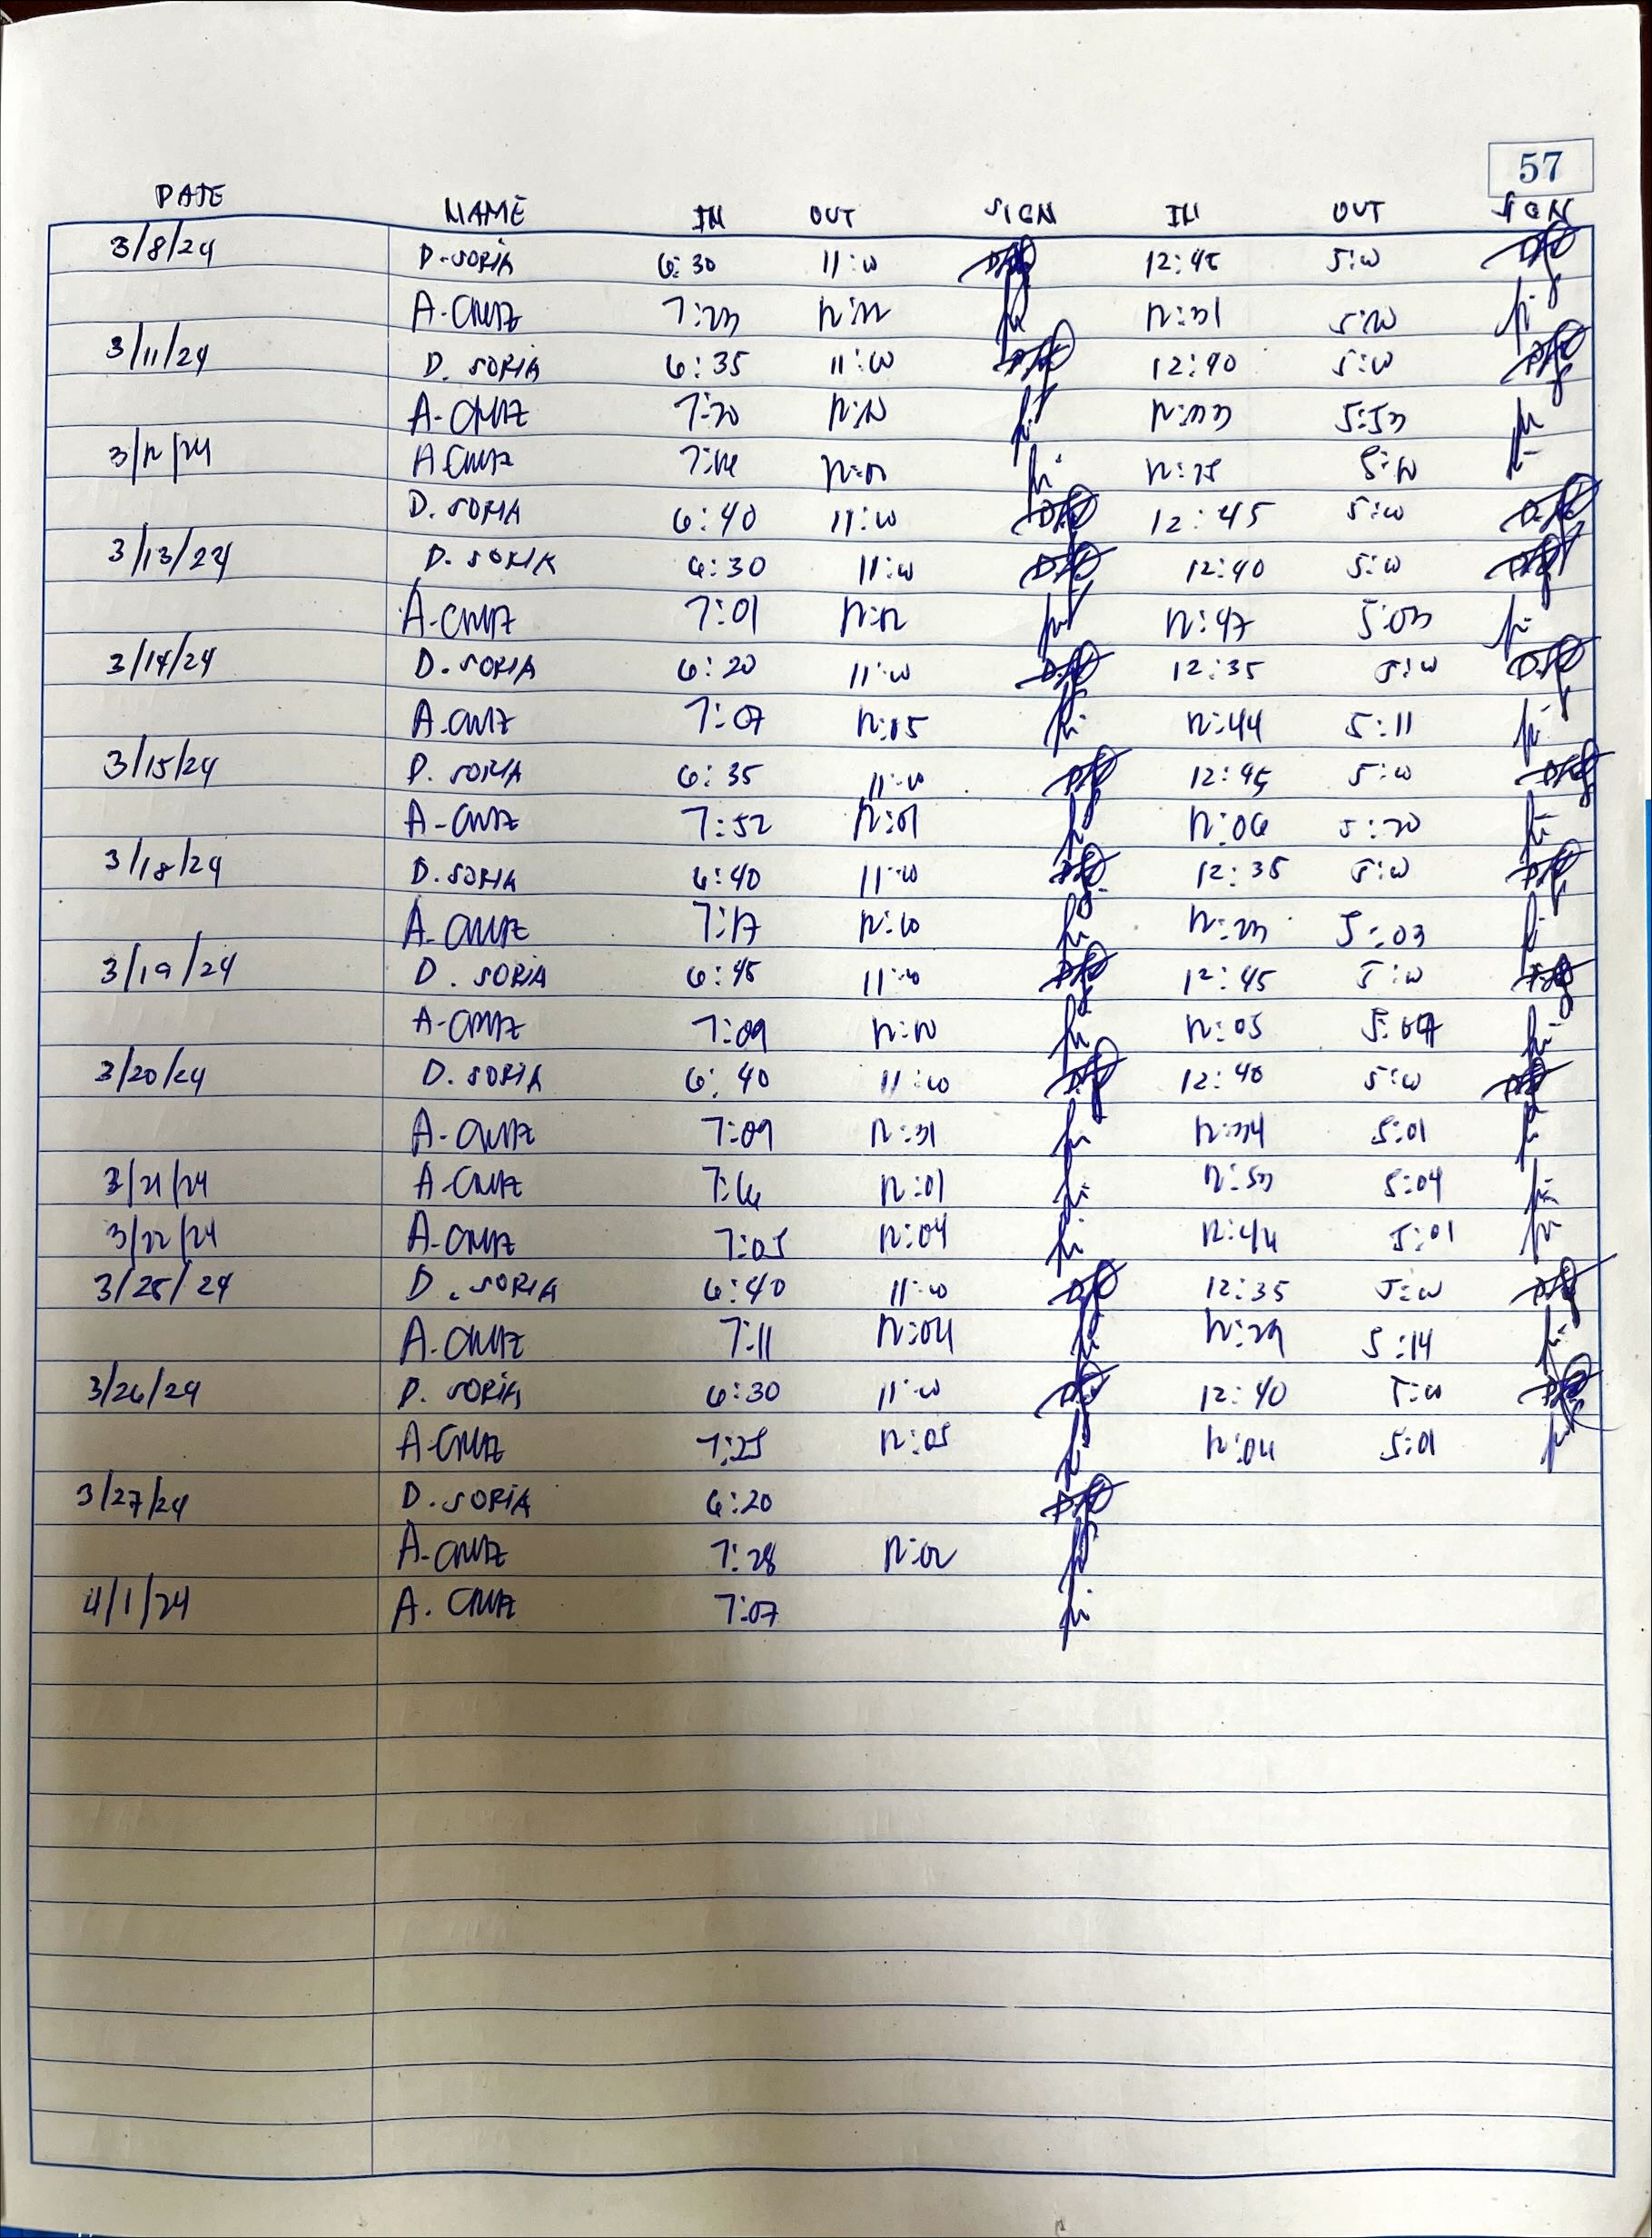 57
DATE NAME IN OUT SIGN IN OUT SIGN
3/8/24 D. SORIA 6:30 11:00 12:45 5:00
A. CRUZ 7:23 12:12 12:31 5:10
3/11/24 D. SORIA 6:35 11:00 12:40 5:00
A. CRUZ 7:20 12:10 12:33 5:53
3/12/24 A. CRUZ 12:25 5:10
D. SORIA 6:40 11:00 12:45 5:00
3/13/24 D. SORIA 6:30 11:00 12:40 5:00
A. CRUZ 7:01 12:12 12:47 5:03
3/14/24 D. SORIA 6:20 11:00 12:35 5:00
A. CRUZ 7:07 12:15 12:44 5:11
3/15/24 D. SORIA 6:35 11:00 12:45 5:00
A. CRUZ 7:52 12:01 12:06 5:20
3/18/24 D. SORIA 6:40 11:00 12:35 5:00
A. CRUZ 7:17 12:10 12:23 5:03
3/19/24 D. SORIA 6:45 11:00 12:45 5:00
A. CRUZ 7:09 12:10 12:05
3/20/24 D. SORIA 6:40 11:00 12:40 5:00
A. CRUZ 7:09 12:31 12:34 5:01
3/21/24 A. CRUZ 12:01 12:53 5:04
3/22/24 A. CRUZ 7:05 12:04 12:44 5:01
3/25/24 D. SORIA 6:40 11:00 12:35 5:00
A. CRUZ 7:11 12:04 12:29 5:14
3/26/24 D. SORIA 6:30 11:00 12:40 5:00
A. CRUZ 7:25 12:05 12:04 5:01
3/27/24 D. SORIA 6:20
A. CRUZ 7:28 12:02
4/1/24 A. CRUZ 7:07